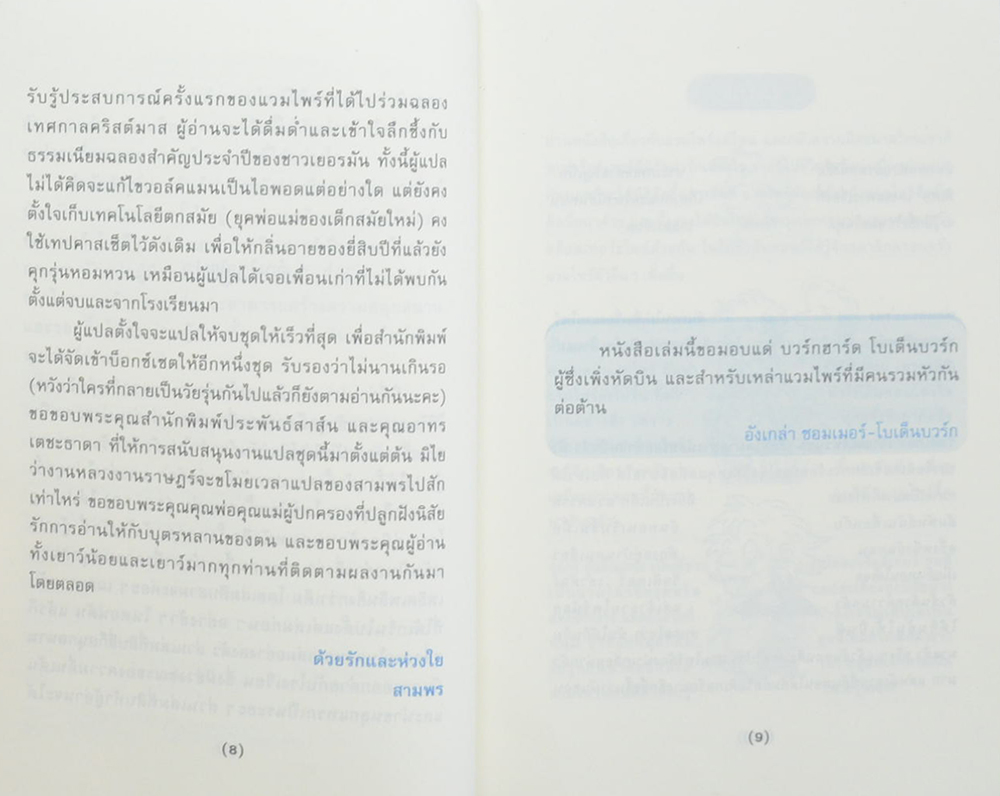 รับรู้ประสบการณ์ครั้งแรกของแวมไพร์ที่ได้ไปร่วมฉลอง
เทศกาลคริสต์มาส ผู้อ่านจะได้ดื่มด่ำและเข้าใจลึกซึ้งกับ
ธรรมเนียมฉลองสำคัญประจำปีของชาวเยอรมัน ทั้งนี้ผู้แปล
ไม่ได้คิดจะแก้ไขวอล์คแมนเป็นไอพอดแต่อย่างใด แต่ยังคง
ตั้งใจเก็บเทคโนโลยีตกสมัย (ยุคพ่อแม่ของเด็กสมัยใหม่) คง
ใช้เทปคาสเซ็ตไว้ดังเดิม เพื่อให้กลิ่นอายของยี่สิบปีที่แล้วยัง
คุกรุ่นหอมหวน เหมือนผู้แปลได้เจอเพื่อนเก่าที่ไม่ได้พบกัน
ตั้งแต่จบและจากโรงเรียนมา
ผู้แปลตั้งใจจะแปลให้จบชุดให้เร็วที่สุด เพื่อสำนักพิมพ์
จะได้จัดเข้าบ็อกซ์เซตให้อีกหนึ่งชุด รับรองว่าไม่นานเกินรอ
(หวังว่าใครที่กลายเป็นวัยรุ่นกันไปแล้วก็ยังตามอ่านกันนะคะ)
ขอขอบพระคุณสำนักพิมพ์ประพันธ์สาส์น และคุณอาทร
เตชะธาดา ที่ให้การสนับสนุนงานแปลชุดนี้มาตั้งแต่ต้น มิไย
ว่างานหลวงงานราษฎร์จะขโมยเวลาแปลของสามพรไปสัก
เท่าไหร่ ขอขอบพระคุณคุณพ่อคุณแม่ผู้ปกครองที่ปลูกฝังนิสัย
รักการอ่านให้กับบุตรหลานของตน และขอบพระคุณผู้อ่าน
ทั้งเยาว์น้อยและเยาว์มากทุกท่านที่ติดตามผลงานกันมา
โดยตลอด
ด้วยรักและห่วงใย
สามพร
(8)
หนังสือเล่มนี้ขอมอบแด่ บวร์กฮาร์ด โบเด็นบวร์ก
ผู้ซึ่งเพิ่งหัดบิน และสำหรับเหล่าแวมไพร์ที่มีคนรวมหัวกัน
ต่อต้าน
อังเกล่า ซอมเมอร์-โบเด็นบวร์ก
(9)